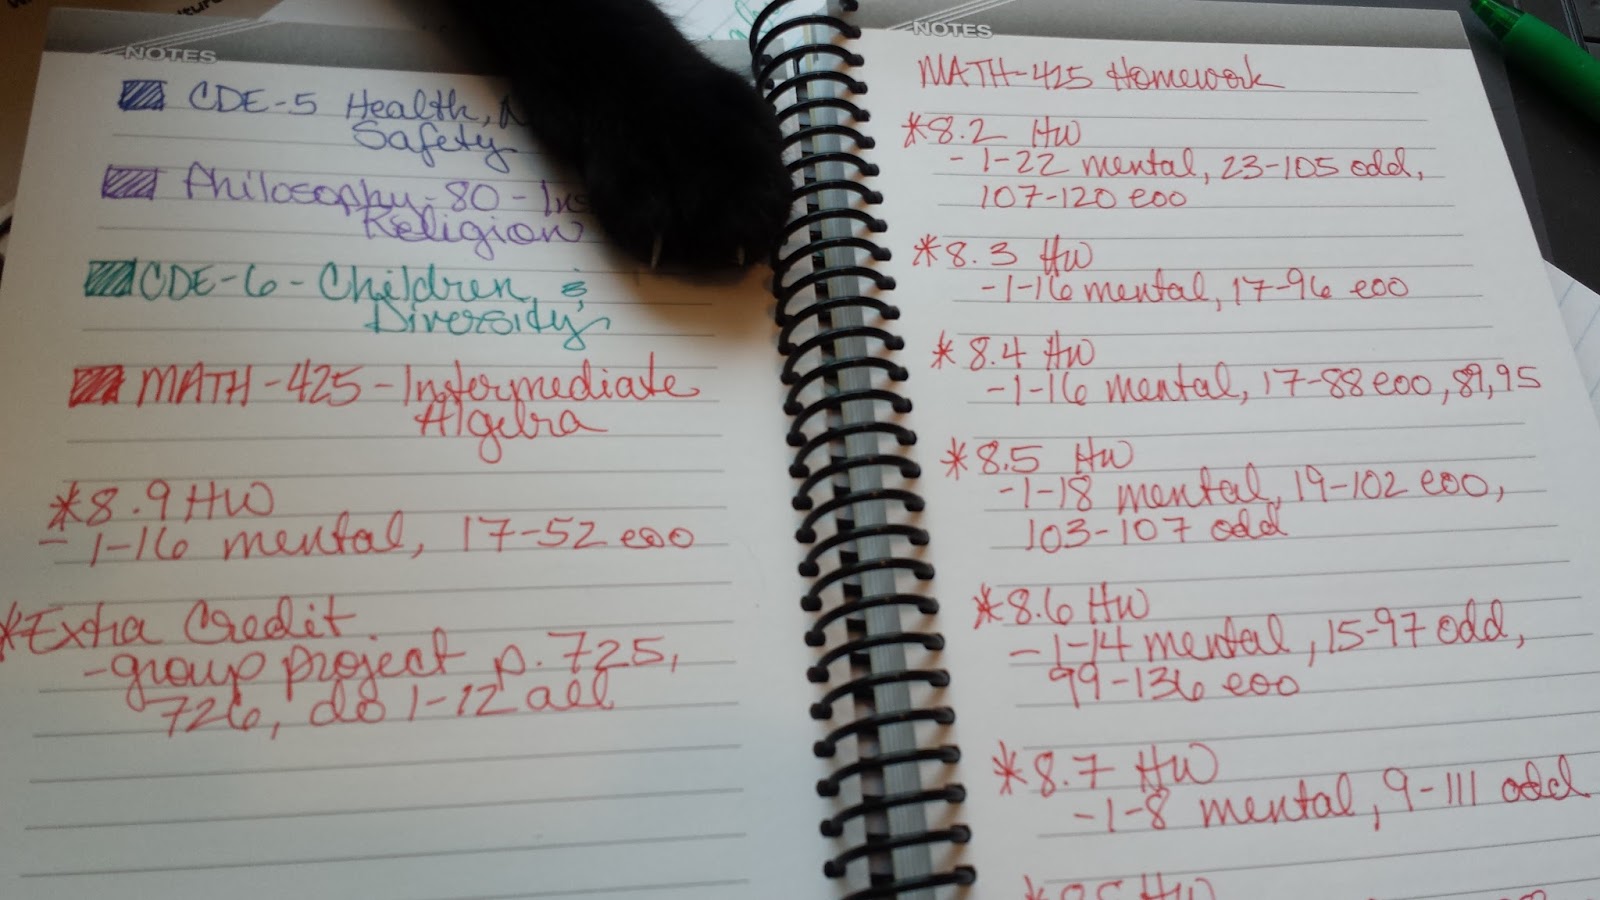 NOTES
CDE-5 Health,
Safety
Philosophy-80-
Religion
CDE-6-Children, &
Diversity
MATH-425-Intermediate
Algebra
*8.9 HW
-1-16 mental, 17-52 eoo
*Extra Credit.
-group project p. 725,
726, do 1-12 all
NOTES
MATH-425 Homework
*8.2 HW
-1-22 mental, 23-105 odd,
107-120 eoo
*8.3 HW
-1-16 mental, 17-96 eoo
*8.4 HW
-1-16 mental, 17-88 eoo, 89, 95
*8.5 HW
-1-18 mental, 19-102 eoo,
103-107 odd
*8.6 HW
-1-14 mental, 15-97 odd,
99-136 eoo
*8.7 HW
-1-8 mental, 9-111 odd